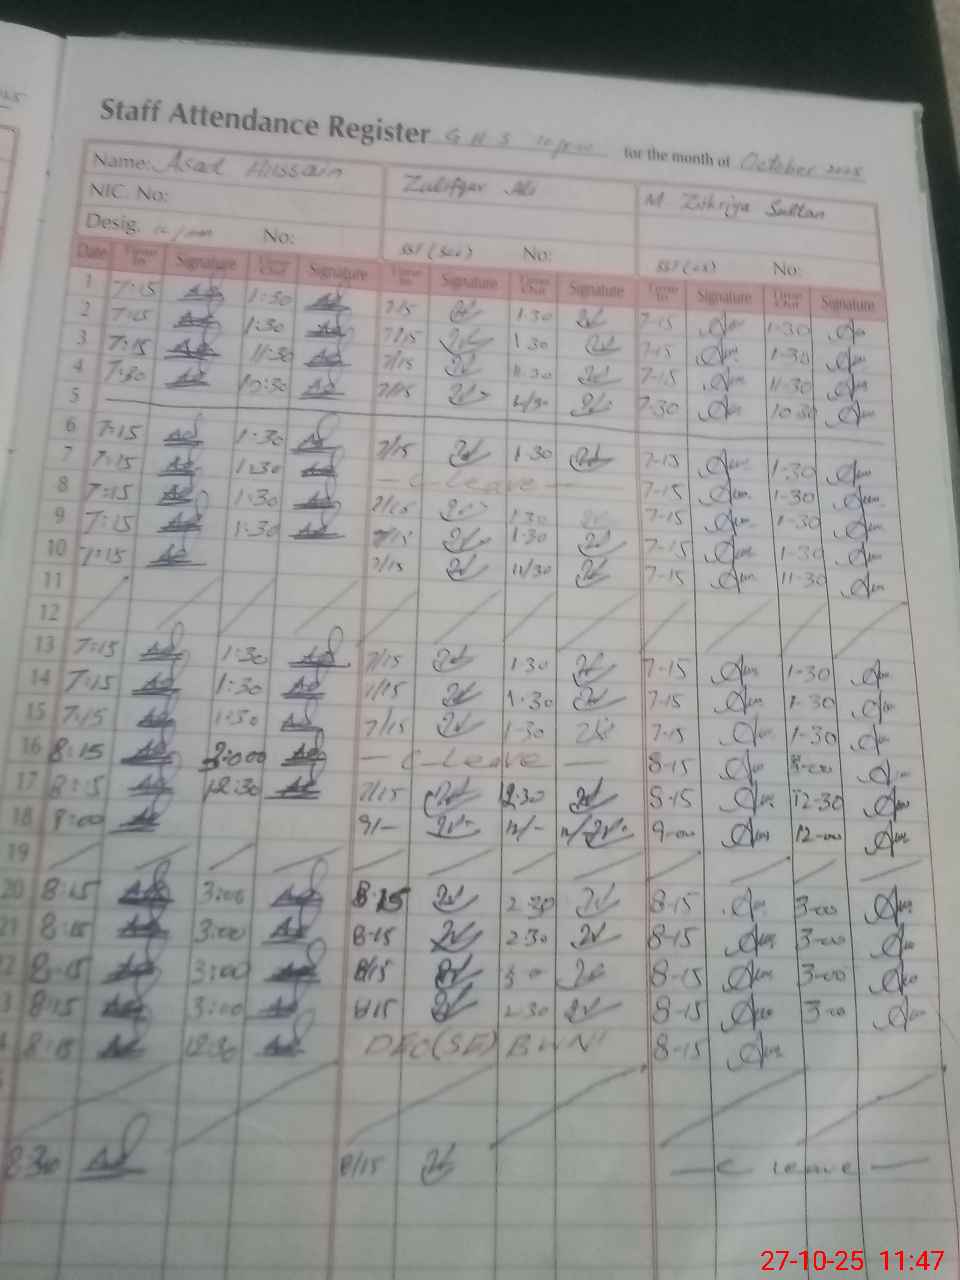 Staff Attendance Register G H S for the month of October 2025
Name: Asad Hussain Zulifqar Ali M Zikriya Sultan
NIC. No:
Desig. No: SST (Sci) No: No:
Date Time In Signature Time Out Signature Time In Signature Time Out Signature Time In Signature Time Out Signature
1 7:15 1:30 7/15 1.30 7-15 1-30
2 7:15 1:30 7/15 1.30 7-15 1-30
3 7:15 11:30 7/15 11.30 7-15 11-30
4 7:30 10:30 7/15 7-30 10-30
5
6 7:15 1:30 7/15 1.30 7-15 1-30
7 7:15 1:30 — C-Leave — 7-15 1-30
8 7:15 1:30 7/15 1.30 7-15 1-30
9 7:15 1:30 7/15 1.30 7-15 1-30
10 7:15 7/15 11/30 7-15 11-30
11
12
13 7:15 1:30 7/15 1.30 7-15 1-30
14 7:15 1:30 7/15 1.30 7-15 1-30
15 7:15 1:30 7/15 1-30 7-15 1-30
16 8:15 — C-Leave — 8-15 3-00
17 8:15 12:30 7/15 12.30 8-15 12-30
18 9:00 9/- 12/- 9-00 12-00
19
20 8:15 3:00 8-15 2-30 8-15 3-00
21 8:15 3:00 8-15 2-30 8-15 3-00
2 8:15 3:00 8/15 3-0 8-15 3-00
3 8:15 3:00 8/15 2-30 8-15 3-00
4 8:15 12:30 DEO(SE) BWN 8-15
8:30 8/15 — C leave —
27-10-25 11:47